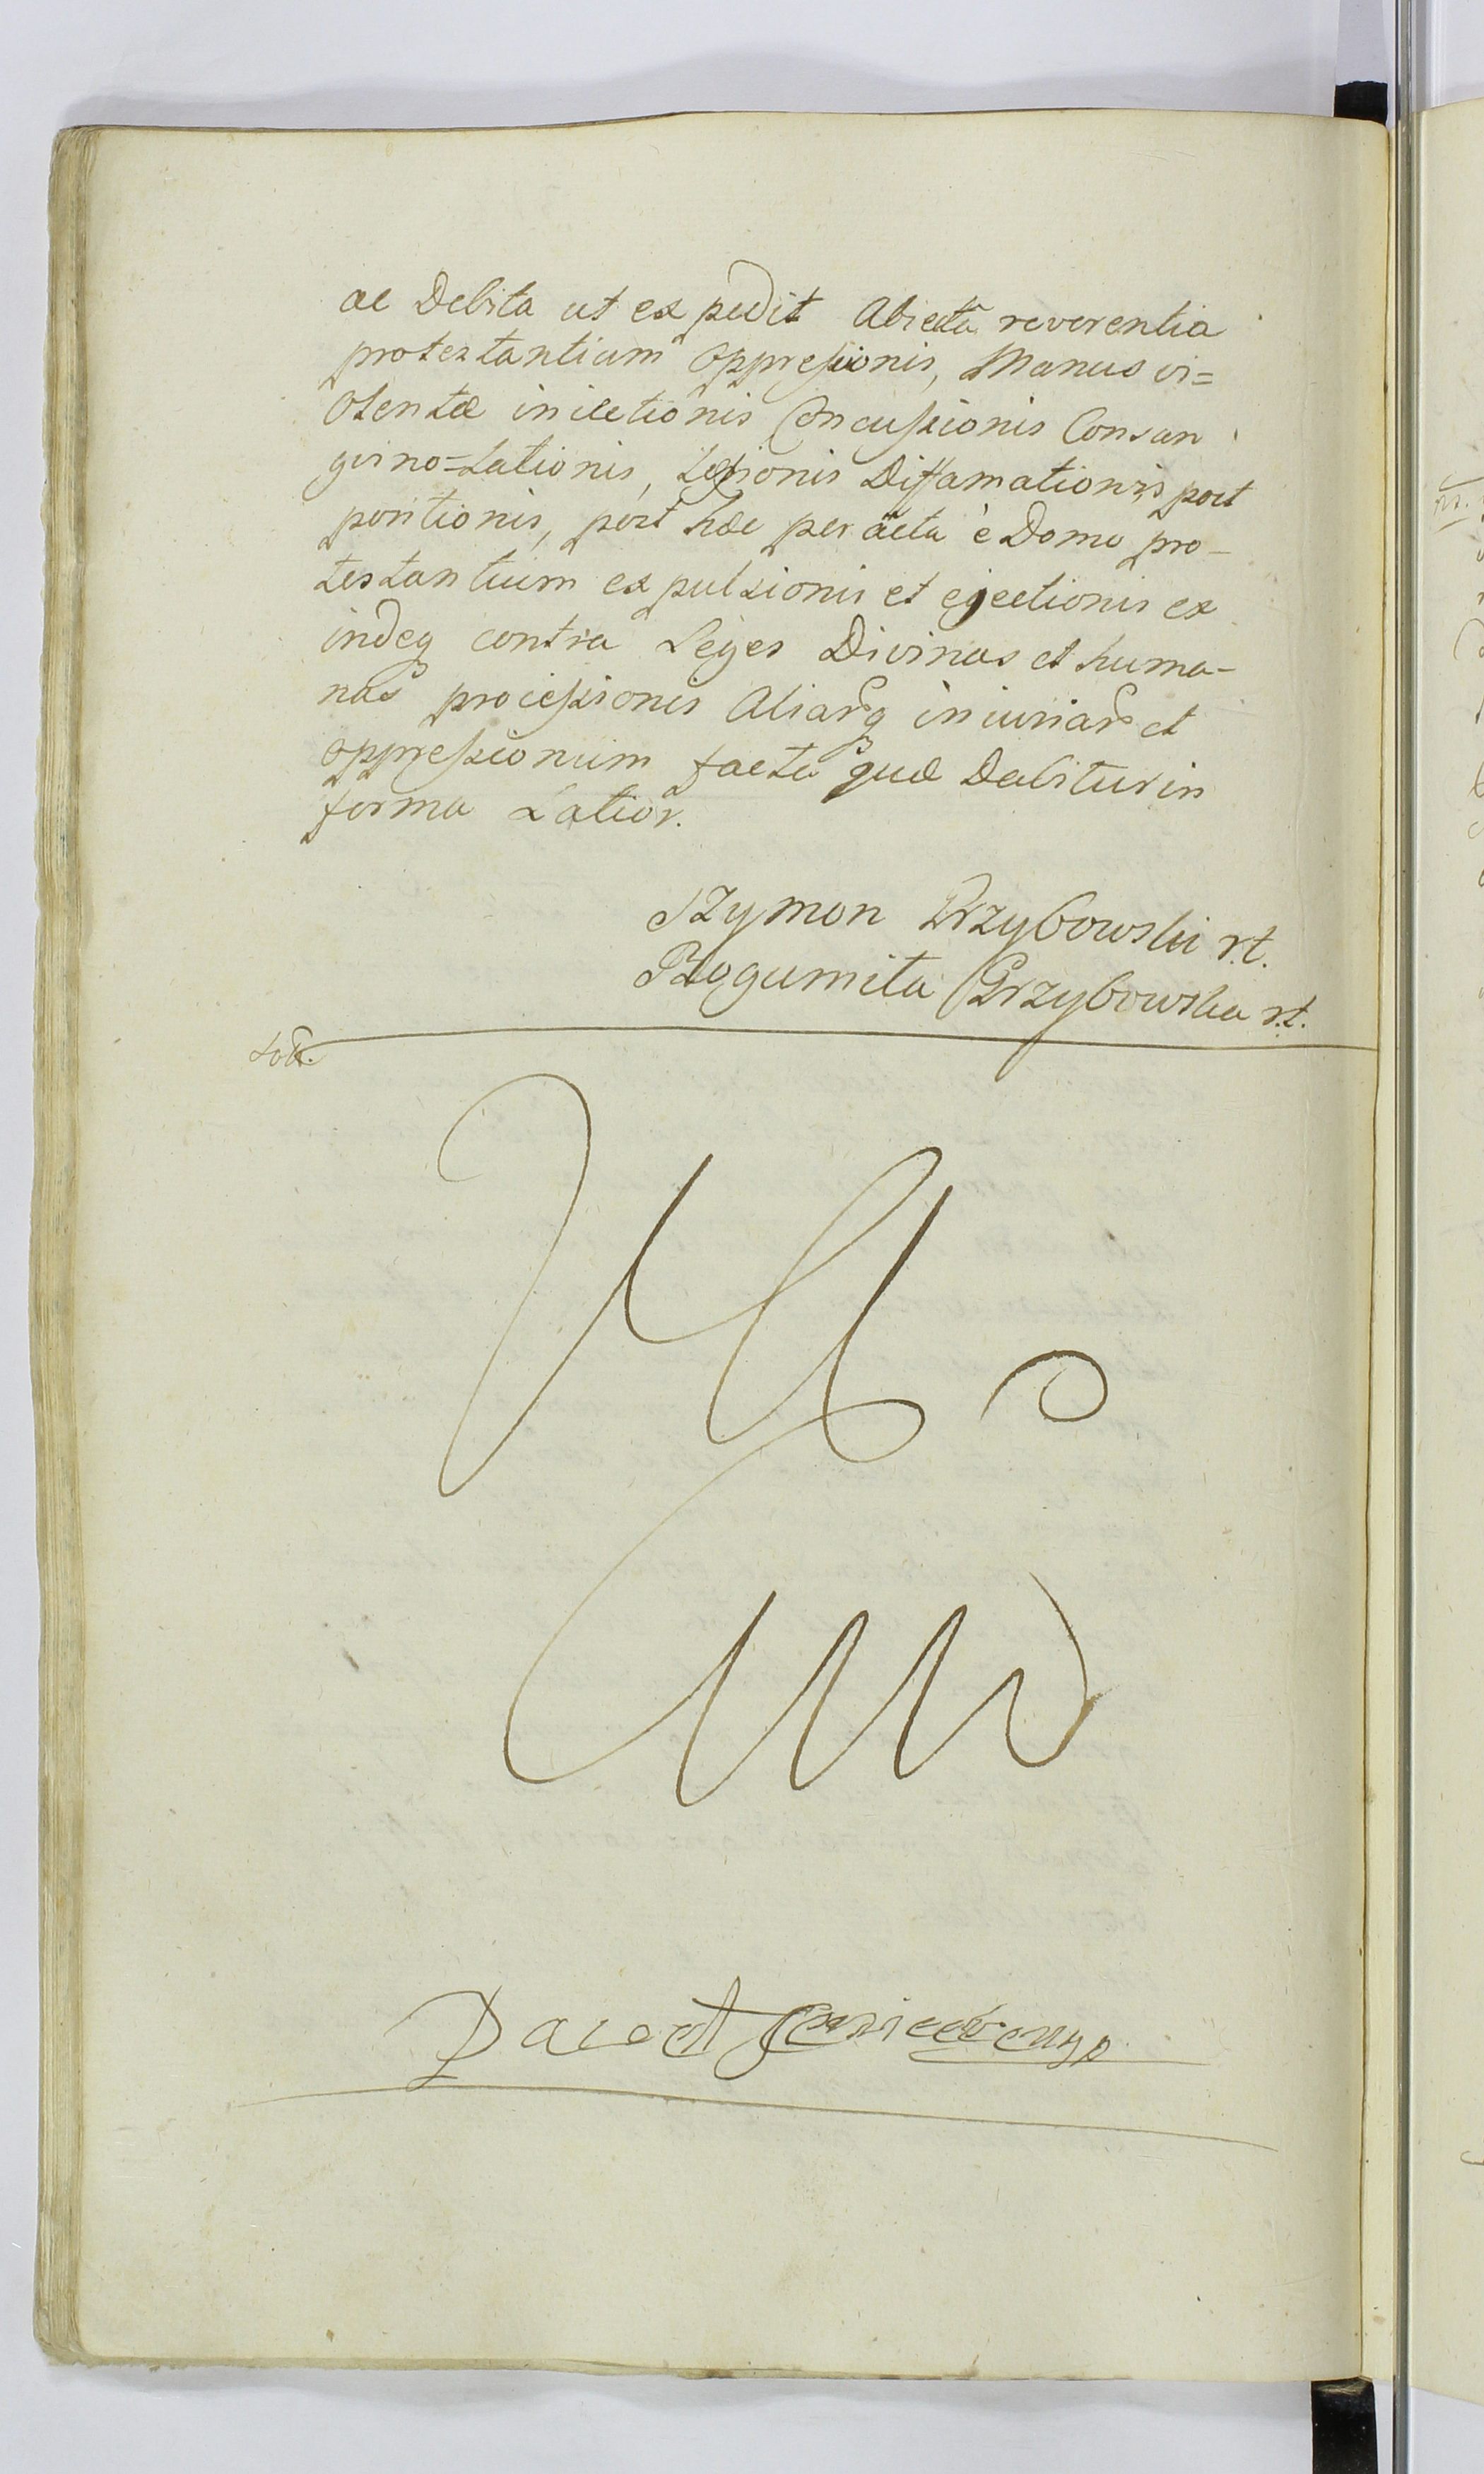 ac Debita ut expedit Abiecta reverentia
protestantium Oppressionis, Manus vi=
olentæ iniectionis Concussionis Consan
guino=Lationis, Læsionis Diffamationis post
positionis, post hæc peracta è Domo pro-
testantium expulsionis et ejectionis ex
indeq contra Leges Divinas et huma-
nas processionis Aliarq iniuriar et
oppressionum facta quæ Dabitur in
forma Latior.
Szymon Przybowski rt.
Bogumiła Przybowska rt.